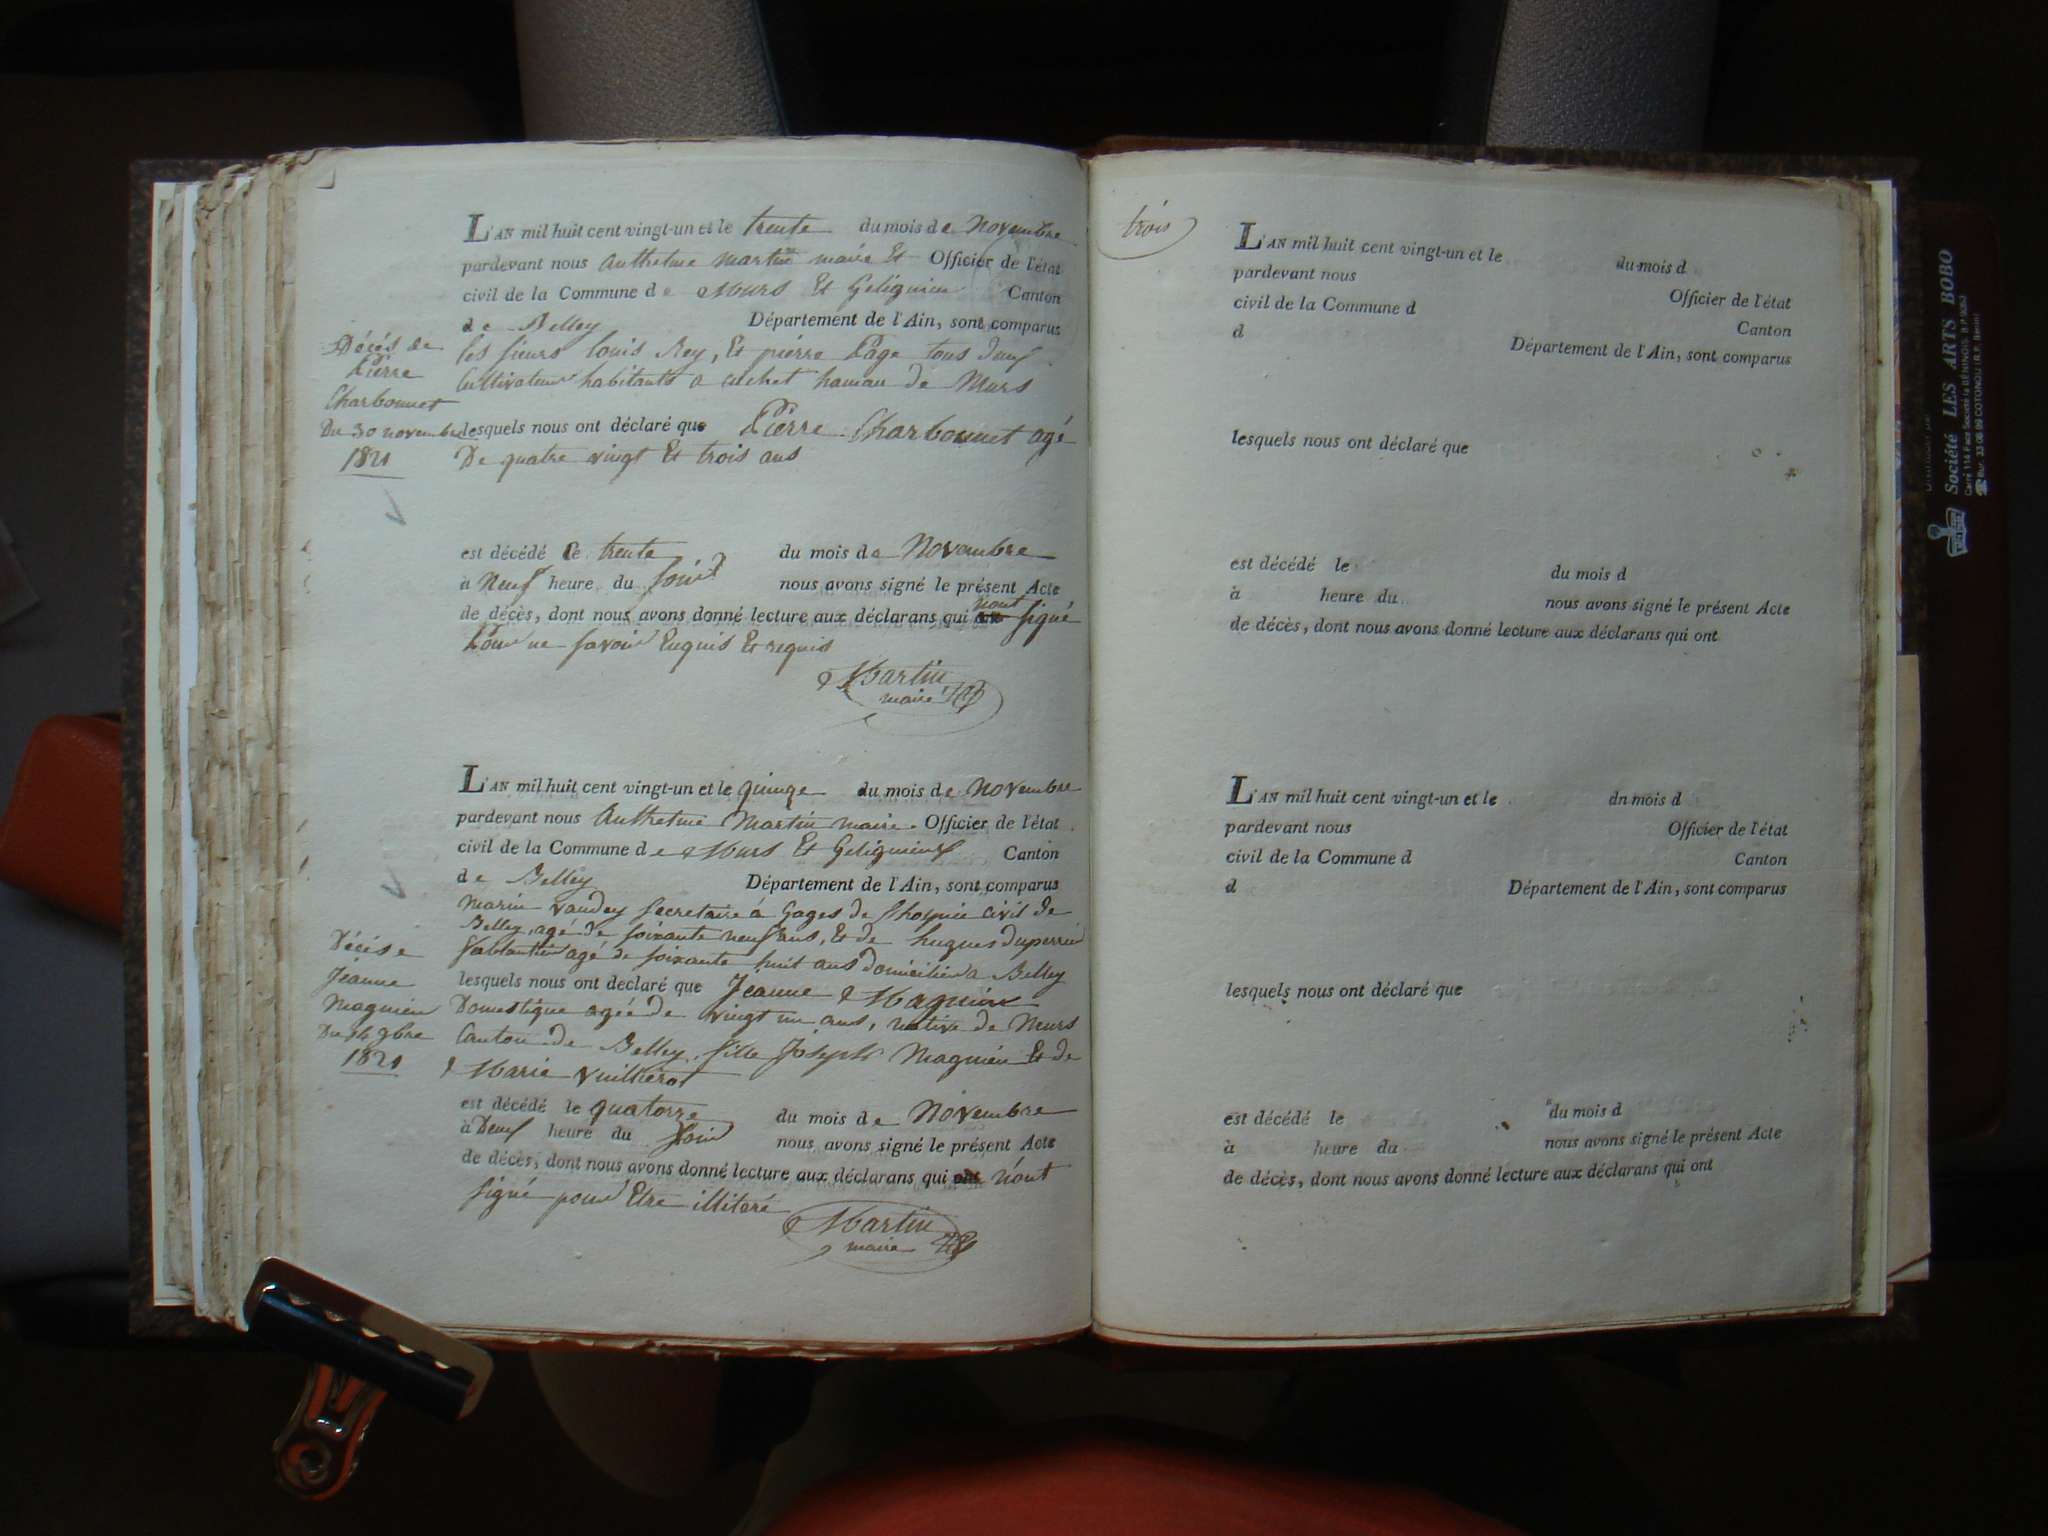 L'AN mil huit cent vingt-un et le trente du mois de Novembre
pardevant nous Anthelme Martin maire Et Officier de l'état
civil de la Commune de Murs Et Gelignieu Canton
de Belley Département de l'Ain, sont comparus
les sieurs louis Rey, Et pierre Page tous deux
Cultivateurs habitants a cuchet hameau de Murs
lesquels nous ont déclaré que Pierre Charbonnet agé
De quatre vingt Et trois ans
Décés de
Pierre
Charbonnet
Du 30 novembre
1821
est décédé le trente du mois de Novembre
à Neuf heure du soir nous avons signé le présent Acte
de décès, dont nous avons donné lecture aux déclarans qui n'ont signé
Pour ne savoir Enquis Et requis
Martin
maire
L'AN mil huit cent vingt-un et le quinze du mois de Novembre
pardevant nous Anthelme Martin maire. Officier de l'état
civil de la Commune de Murs Et Gelignieux Canton
de Belley Département de l'Ain, sont comparus
Marin vaudey secretaire á Gages de l'hospice civil de
Belley, agé de soixante neuf ans, Et de hugues duperrier
agé de soixante huit ans Domicilier a Belley
lesquels nous ont declaré que Jeanne Magnien
Domestique agée de vingt un ans, native de Murs
Canton de Belley, fille Joseph Magnien Et de
Marie Vuillierot
Décés e
Jeanne
Magnien
Du 14 9bre
1821
est décédé le quatorze du mois de Novembre
à Deux heure du soir nous avons signé le présent Acte
de décès, dont nous avons donné lecture aux déclarans qui n'ont
signé pour Etre illitéré
Martin
maire
trois
L'AN mil huit cent vingt-un et le du mois d
pardevant nous Officier de l'état
civil de la Commune d Canton
d Département de l'Ain, sont comparus
lesquels nous ont déclaré que
est décédé le du mois d
à heure du nous avons signé le présent Acte
de décès, dont nous avons donné lecture aux déclarans qui ont
L'AN mil huit cent vingt-un et le dn mois d
pardevant nous Officier de l'état
civil de la Commune d Canton
d Département de l'Ain, sont comparus
lesquels nous ont déclaré que
est décédé le du mois d
à heure du nous avons signé le présent Acte
de décès, dont nous avons donné lecture aux déclarans qui ont
Société LES ARTS BOBO